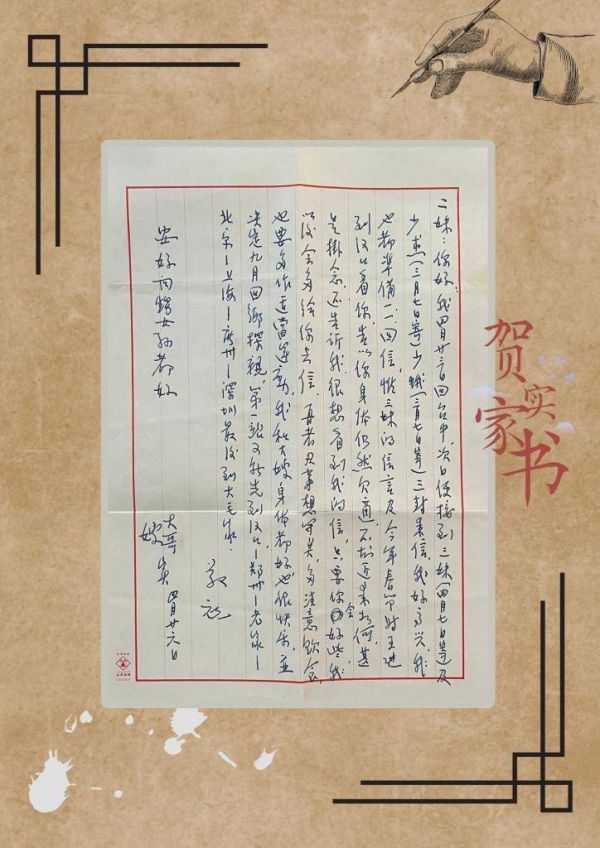 二妹：你好，我四月廿三日回台中，次日便接到三妹（四月七日寄）及
少杰（三月七日寄）少（三月七日寄）三封来信，我好高兴，我
也都準備一一回信，惟三妹的信言及今年春节时
到汉口看你，告以你身体仍然欠適，不知近来如何，甚
是掛念，还告诉我，很想看到我的信，只要你会好些，我
以後会多给你去信，再者凡事想开点，多注意飲食，
也要多作适當运動，我和大嫂身体都好也很快乐，並
决定九月回鄉探親，第一站又将先到汉口—郑州—老家—
北京—上海—广州—深圳最後到大毛家．
敬祝
安好 问甥女孙都好
大哥
嫂
实 四月廿六日
贺实
家书